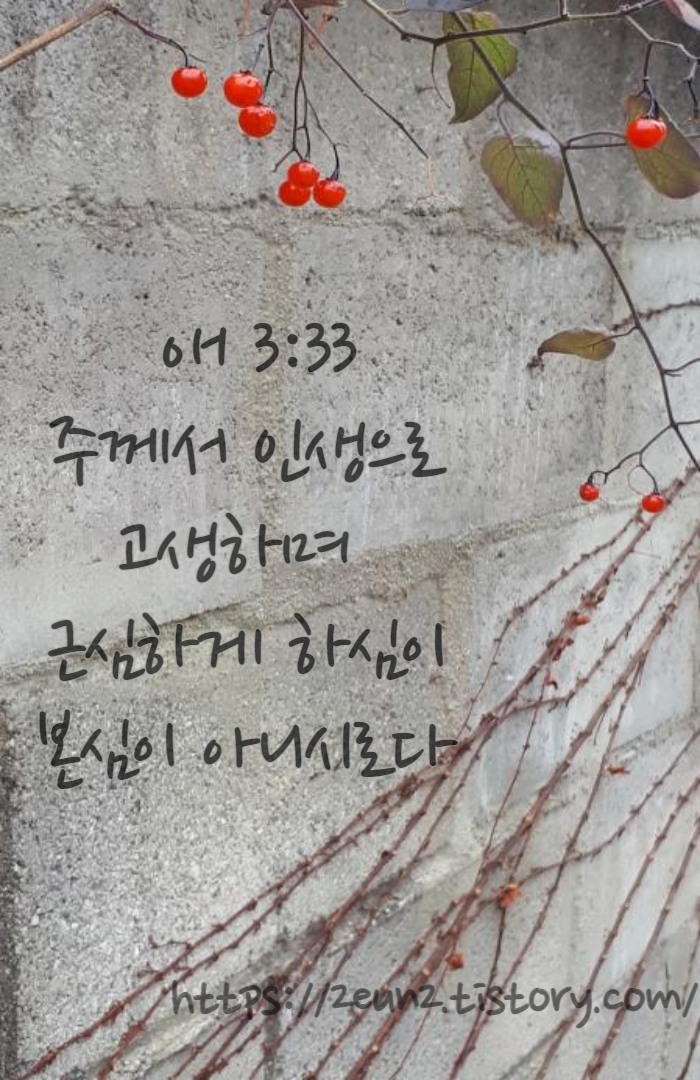 애 3:33
주께서 인생으로
고생하며
근심하게 하심이
본심이 아니시로다
https://2eun2.tistory.com/